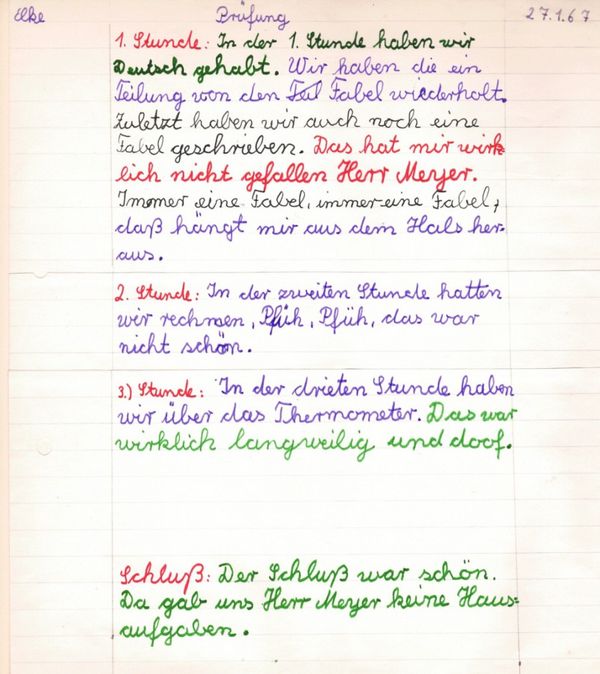 Elke Prüfung 27.1.67
1. Stunde: In der 1. Stunde haben wir
Deutsch gehabt. Wir haben die ein
Teilung von den Teil Fabel wiederholt.
Zuletzt haben wir auch noch eine
Fabel geschrieben. Das hat mir wirk-
lich nicht gefallen Herr Meyer.
Immer eine Fabel, immer eine Fabel,
daß hängt mir aus dem Hals her-
aus.
2. Stunde: In der zweiten Stunde hatten
wir rechnen, Pfüh, Pfüh, das war
nicht schön.
3.) Stunde: In der drieten Stunde haben
wir über das Thermometer. Das war
wirklich langweilig und doof.
Schluß: Der Schluß war schön.
Da gab uns Herr Meyer keine Haus=
aufgaben.